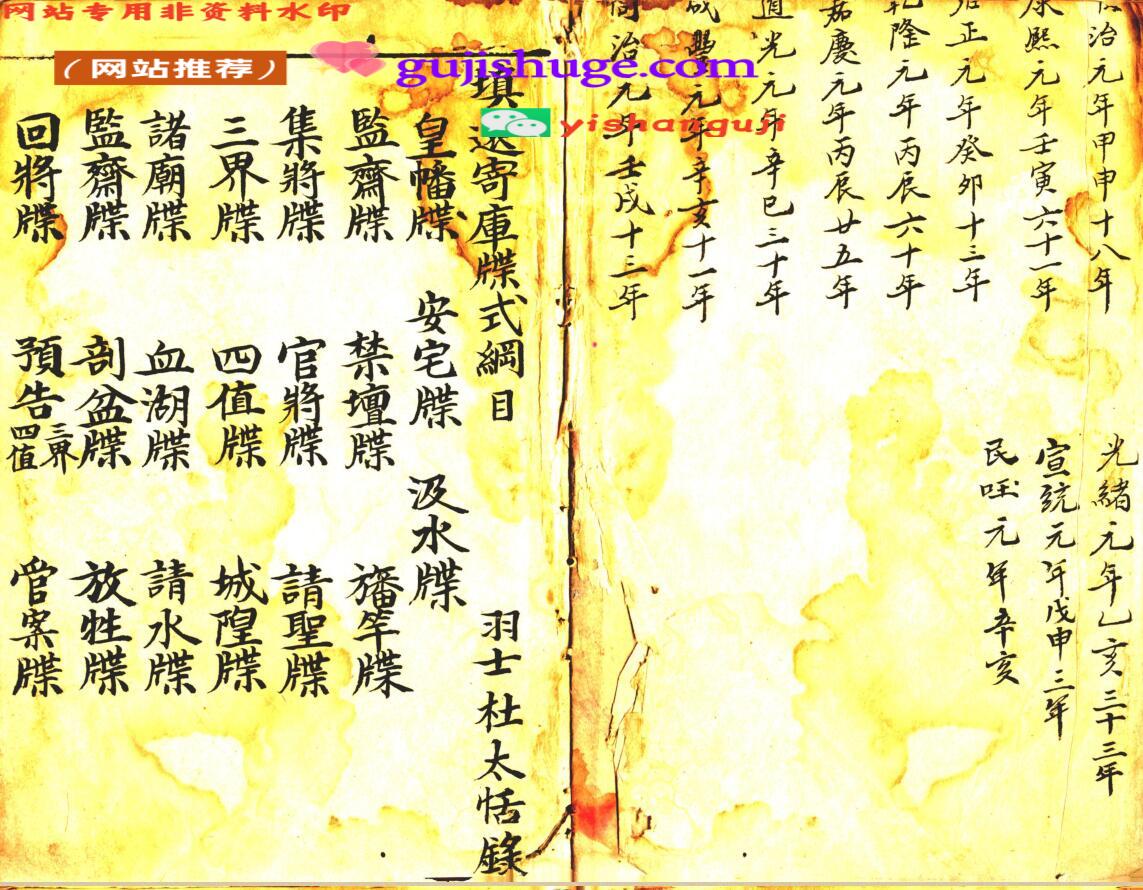 网站专用非资料水印
（网站推荐）
gujishuge.com
yishanguji
治元年甲申十八年
康熙元年壬寅六十一年
正元年癸卯十三年
隆元年丙辰六十年
嘉慶元年丙辰廿五年
道光元年辛巳三十年
咸豐元年辛亥十一年
同治元年壬戌十三年
光緒元年乙亥三十三年
宣統元年戊申三年
民 元年辛亥
填還寄庫牒式綱目
羽士杜太恬錄
皇幡牒 安宅牒 汲水牒
監齋牒 禁壇牒 旛竿牒
集將牒 官將牒 請聖牒
三界牒 四值牒 城隍牒
諸廟牒 血湖牒 請水牒
監齋牒 剖盆牒 放牲牒
回將牒 預告三界四值 管案牒